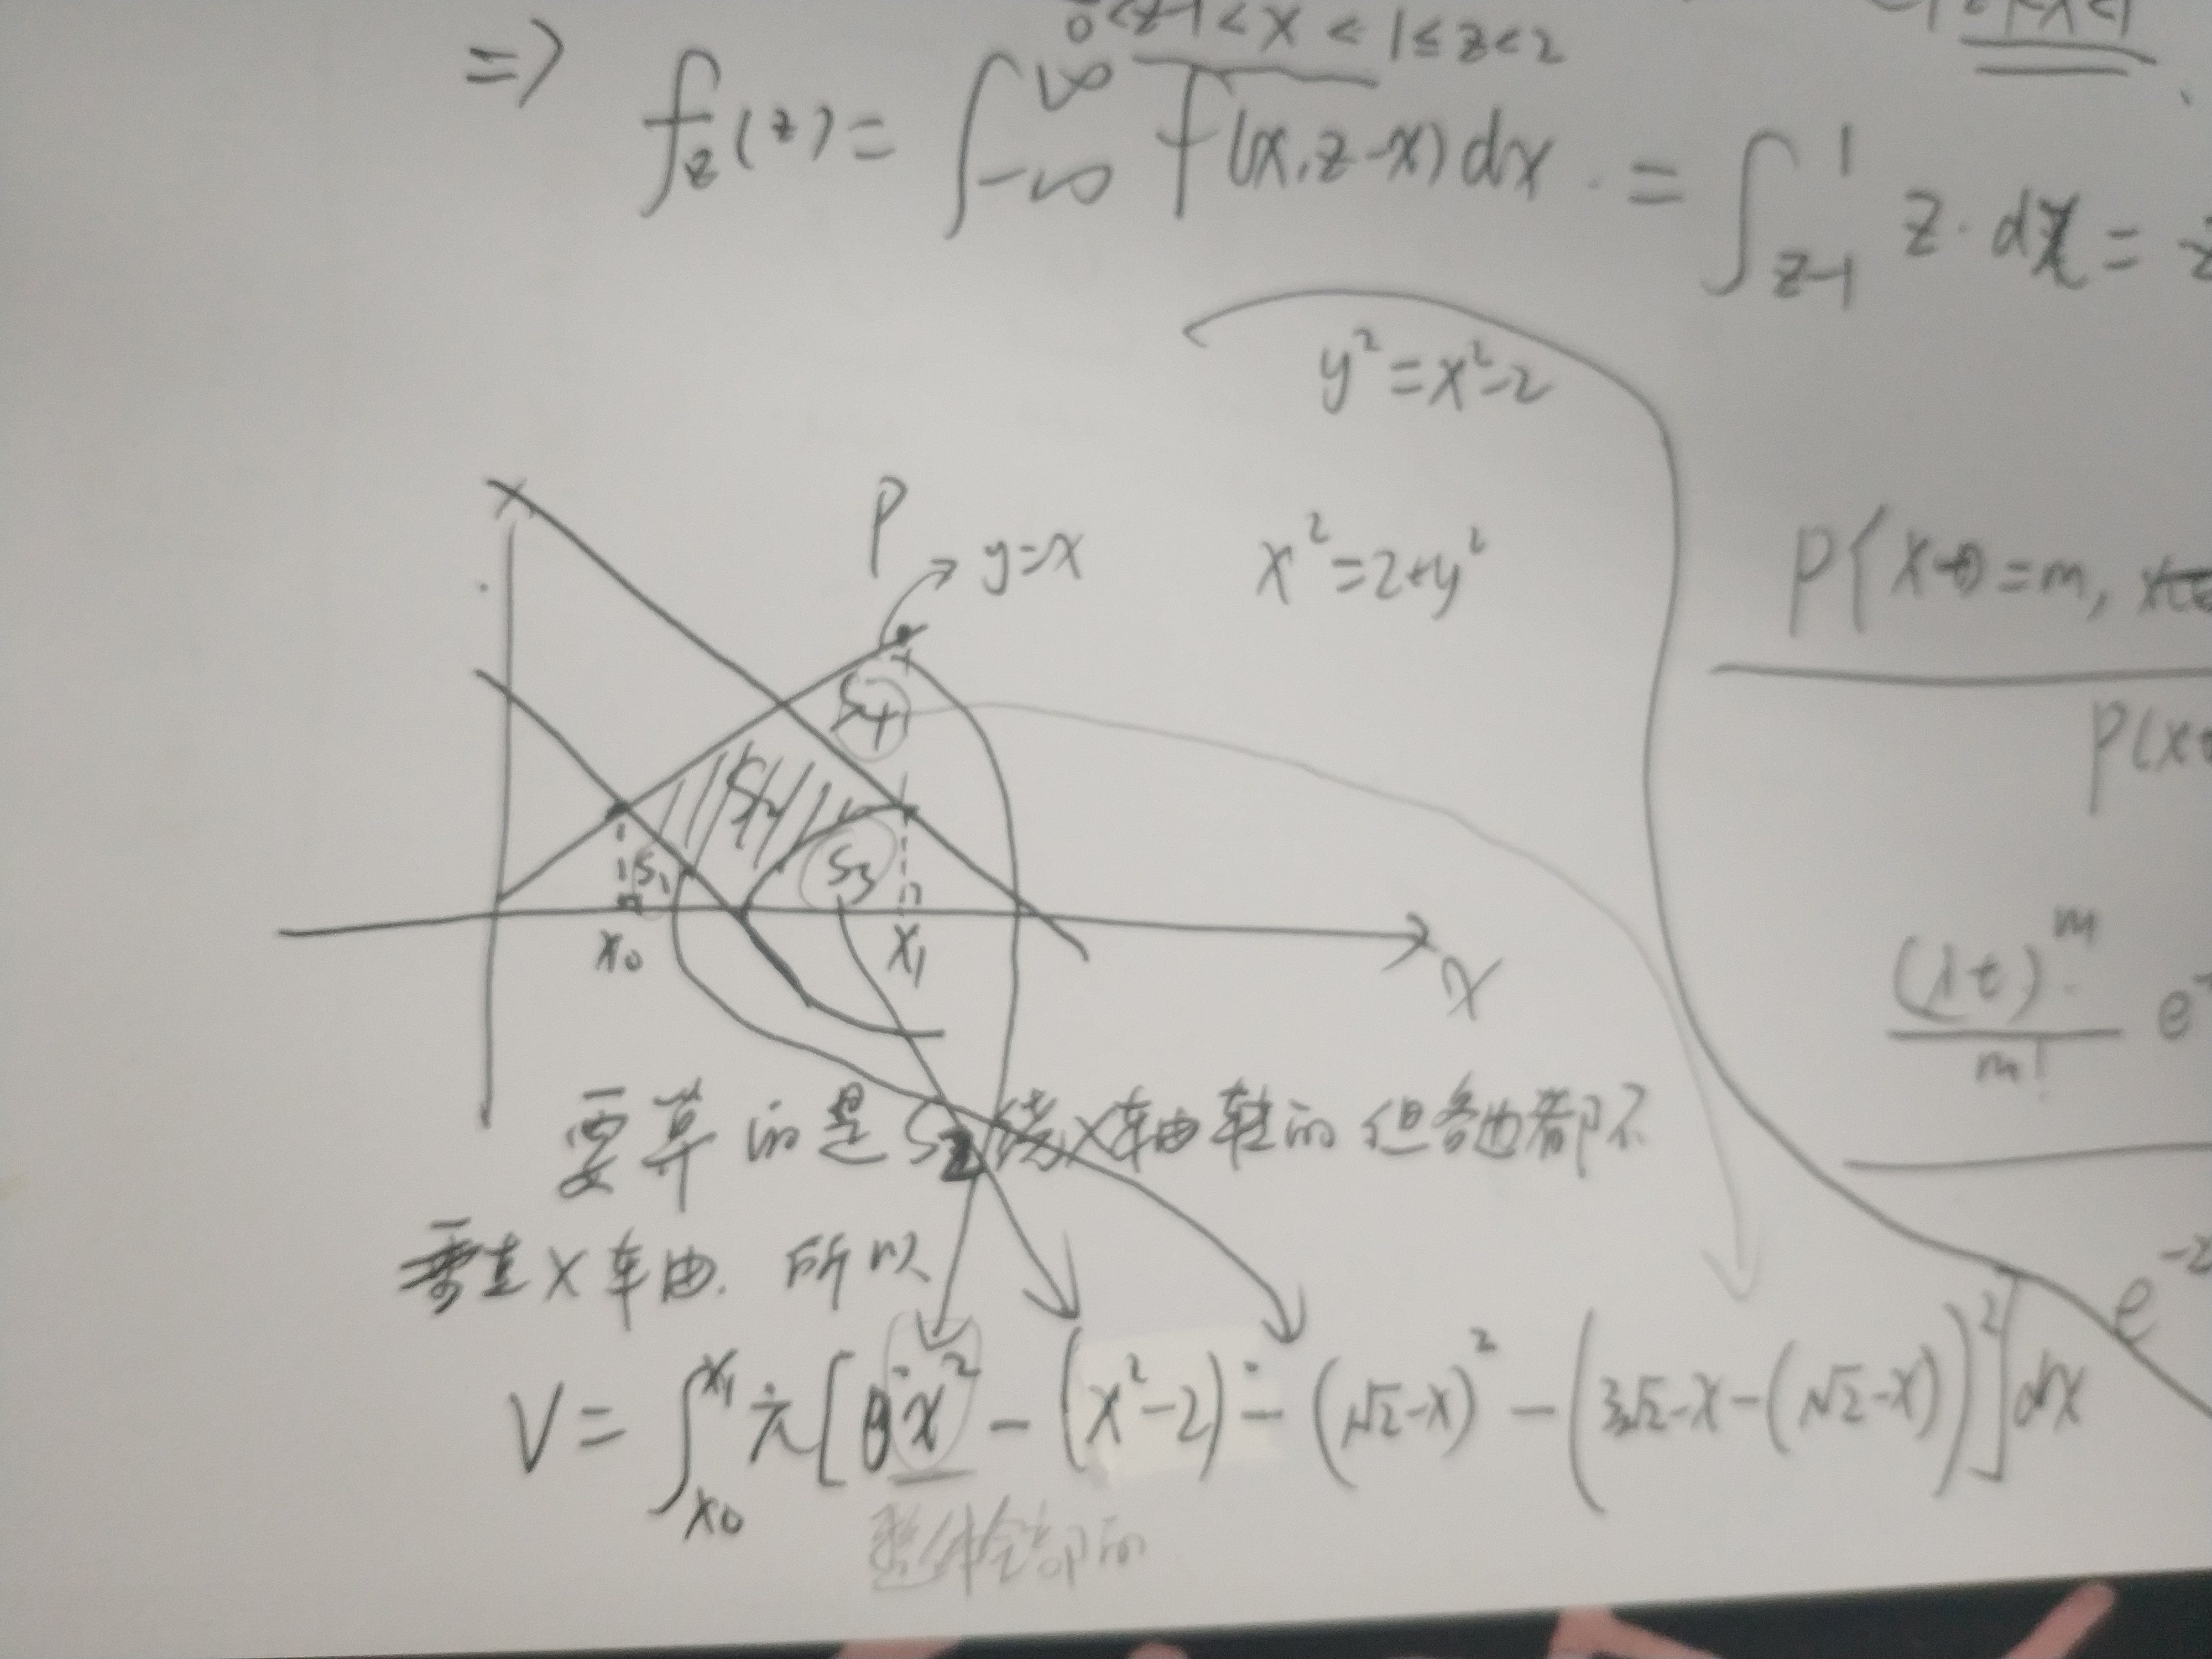 0<z-1<x<1≤z<2
⇒ f_z(z)=∫_{-∞}^{∞} f(x,z-x)dx.=∫_{z-1}^{1} z·dx=
y²=x²-2
P
y=x
x²=2+y²
P{X(t)=m,
S4
S2
S1
S3
x0
x1
X
(λt)^m
m!
e
要算的是S2绕X轴转的 但各边都不
垂直X轴.所以
e^{-2
V=∫_{x0}^{x1} π[x²-(x²-2)-(√2-x)²-(3√2-x-(√2-x))²]dx
整体全部的